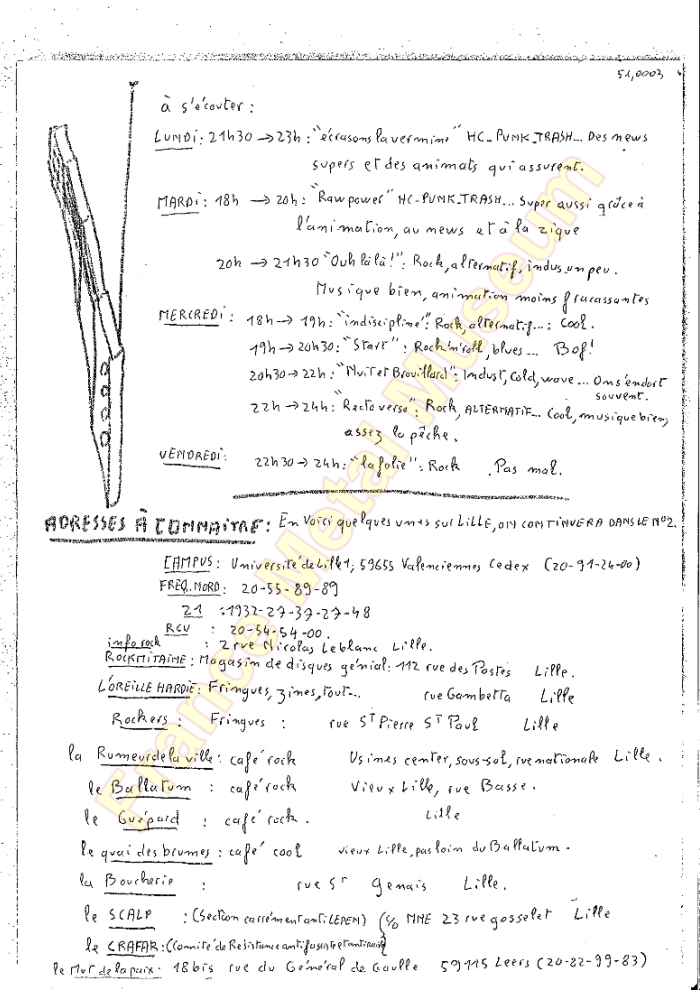 51,0003
à s'écouter :
LUNDI: 21h30 → 23h : "écrasons la vermine" HC-PUNK-TRASH... Des news
supers et des animats qui assurent.
MARDI: 18h → 20h : "Raw power" HC-PUNK-TRASH... Super aussi grâce à
l'animation, au news et à la zique
20h → 21h30 "Ouh là là!" : Rock, alternatif, indus un peu.
Musique bien, animation moins fracassantes
MERCREDI : 18h → 19h : "indiscipline" : Rock, alternatif... : Cool.
19h → 20h30 : "Start" : Rock'n'roll, blues... Bof!
20h30 → 22h : "Nuit et Brouillard" : Indust, Cold, wave... On s'endort
souvent.
22h → 24h : "Recto verso" : Rock, ALTERNATIF... Cool, musique bien,
assez la pêche.
VENDREDI : 22h30 → 24h : "la folie" : Rock . Pas mal.
ADRESSES À CONNAITRE : En voici quelques unes sur LILLE, ON CONTINUERA DANS LE N°2.
CAMPUS : Université de Lille 1, 59655 Valenciennes Cedex (20-91-24-00)
FREQ. NORD : 20-55-89-89
21 : 1932-27-37-27-48
RCV : 20-54-54-00.
info rock : 2 rue Nicolas Leblanc Lille.
ROCKMITAINE : Magasin de disques génial : 112 rue des Postes Lille.
L'OREILLE HARDIE : Fringues, zines, tout.. rue Gambetta Lille
Rockers : Fringues : rue ST Pierre ST Paul Lille
la Rumeur de la ville : café rock Usines center, sous-sol, rue nationale Lille.
le Ballatum : café rock Vieux Lille, rue Basse.
le Guépard : café rock. Lille
le quai des brumes : café cool vieux Lille, pas loin du Ballatum.
la Boucherie : rue ST Genais Lille.
le SCALP : (Section carrément anti LEPEN) (c/o MNE 23 rue gosselet Lille
le CRAFAR : (Comité de Resistance antifasciste et antiraciste)
le Mur de la paix. 18 bis rue du Général de Gaulle 59115 Leers (20-82-99-83)
France Metal Museum